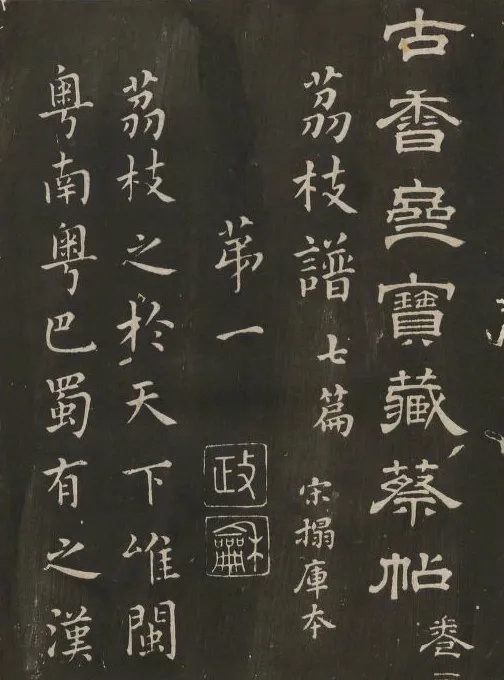 古香齋寶藏蔡帖 卷一
茘枝譜 七篇 宋搨庫本
苐一
政龢
茘枝之於天下唯閩
粤南粤巴蜀有之漢